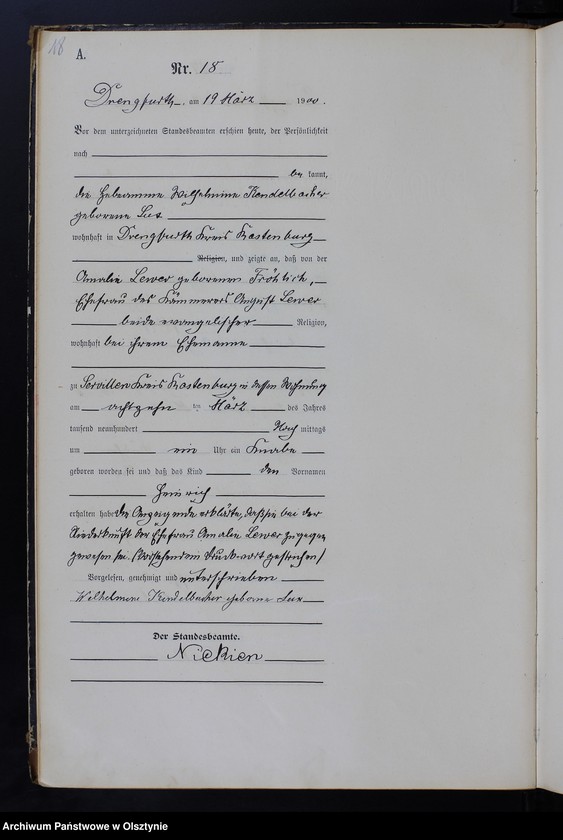 18
A.
Nr. 18
Drengfurth, am 19 März 1900.
Vor dem unterzeichneten Standesbeamten erschien heute, der Persönlichkeit
nach
be kannt,
die Hebeamme Wilhelmine Kendelbacher
geborene Lux
wohnhaft in Drengfurth Kreis Rastenburg
Religion, und zeigte an, daß von der
Amalie Lewer geborenen Fröhlich,
Ehefrau des Kämmerers August Lewer
beide evangelischer Religion,
wohnhaft bei ihrem Ehemanne
zu Servillen Kreis Rastenburg in dessen Wohnung
am achtzehn ten März des Jahres
tausend neunhundert Nach mittags
um ein Uhr ein Knabe
geboren worden sei und daß das Kind den Vornamen
Heinrich
erhalten habe die Anzeigende erklärte, daß sie bei der
Niederkunft der Ehefrau Amalie Lewer zugegen
gewesen sei. (Vorstehend ein Druckwort gestrichen)
Vorgelesen, genehmigt und unterschrieben
Wilhelmine Kendelbacher geborne Lux
Der Standesbeamte.
Nickien
Archiwum Państwowe w Olsztynie